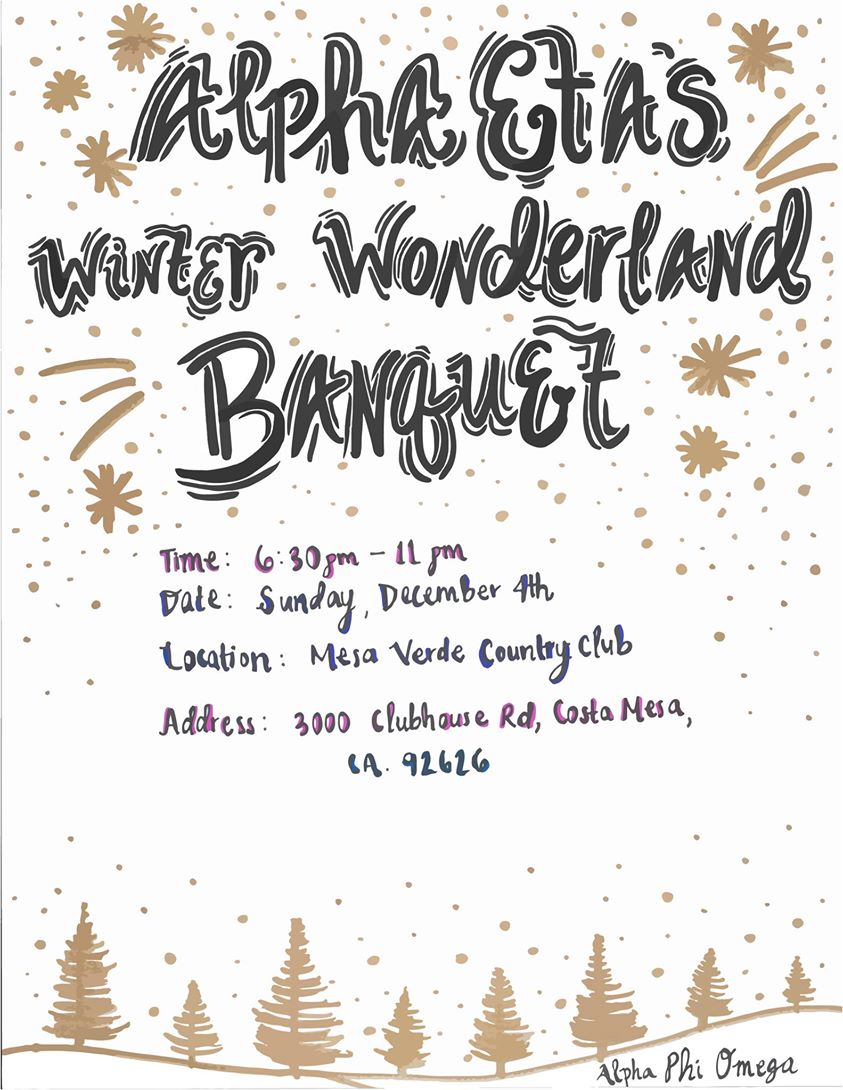 Alpha Eta's
Winter Wonderland
Banquet
Time: 6:30pm - 11 pm
Date: Sunday, December 4th
Location: Mesa Verde Country Club
Address: 3000 Clubhouse Rd, Costa Mesa,
CA. 92626
Alpha Phi Omega